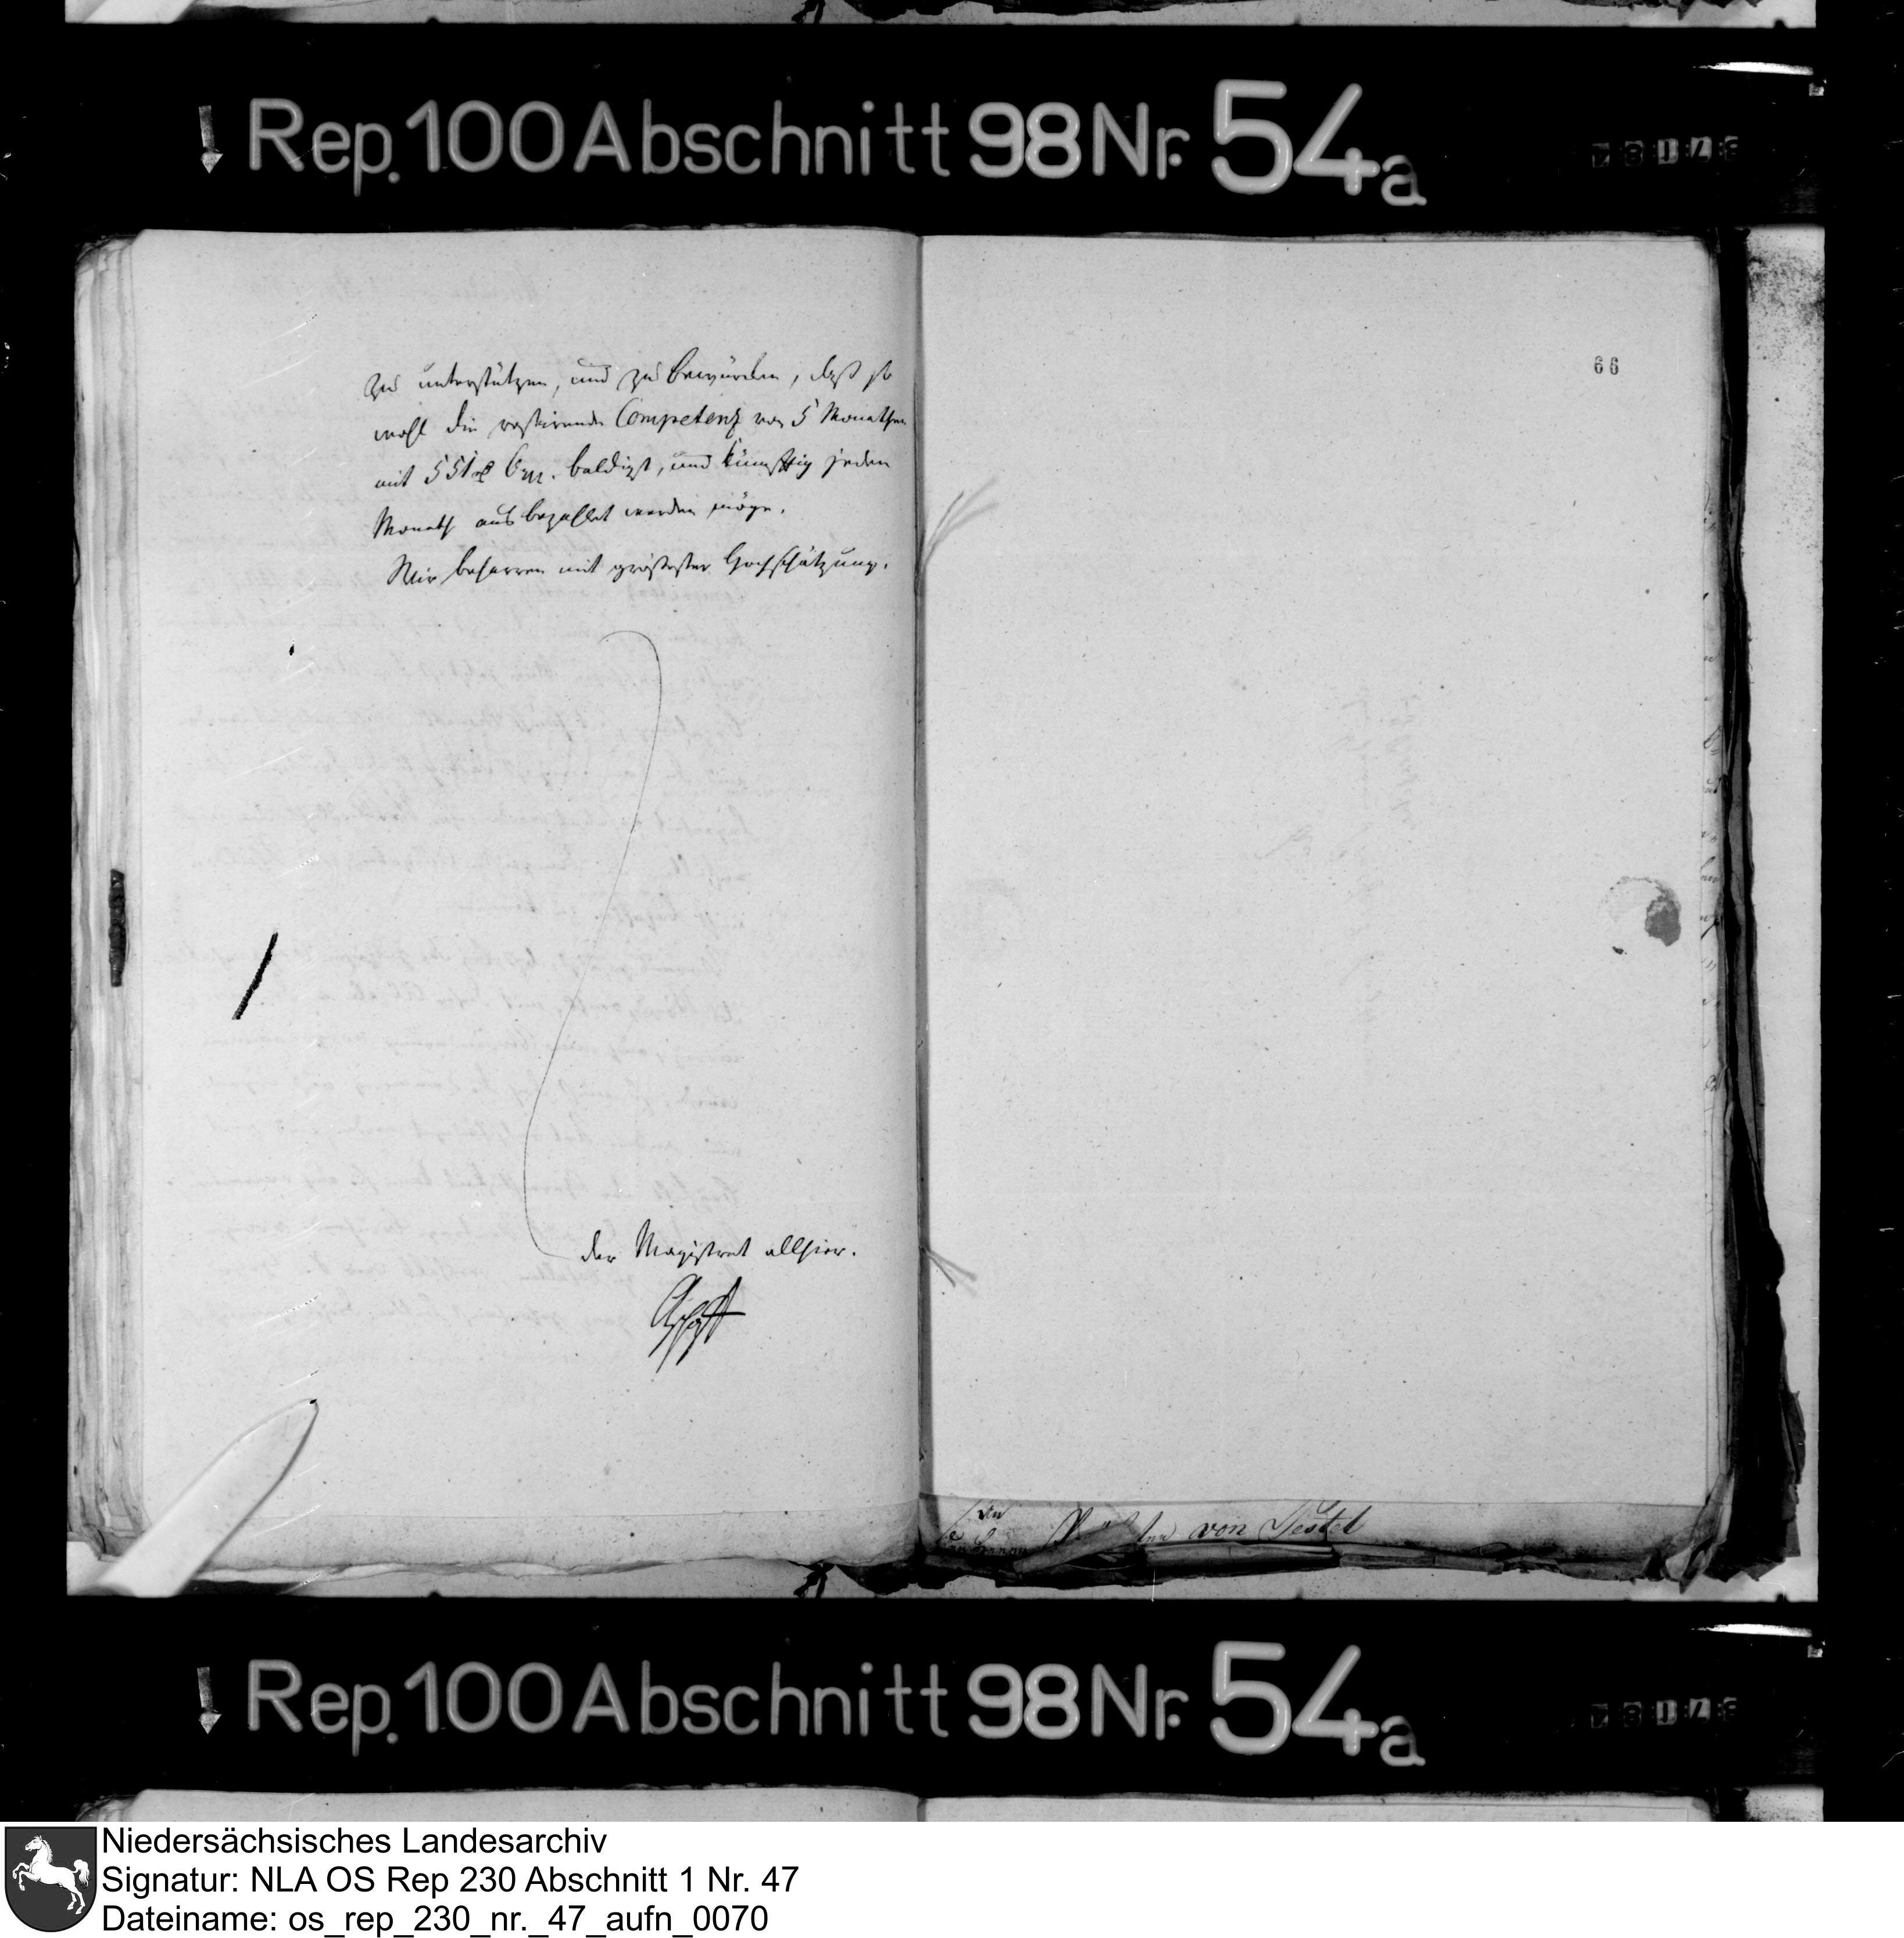 Rep. 100 Abschnitt 98 Nr. 54a
66
zu unterstützen, und zu bewürken, daß so
wohl die restirende Competenz von 5 Monathen
mit 551 rℓ baldigst, und künftig jeden
Monath ausbezahlet werden möge.
Wir beharren mit größester Hochschätzung.
der Magistrat allhier.
von Pestel
Rep. 100 Abschnitt 98 Nr. 54a
Niedersächsisches Landesarchiv
Signatur: NLA OS Rep 230 Abschnitt 1 Nr. 47
Dateiname: os_rep_230_nr._47_aufn_0070